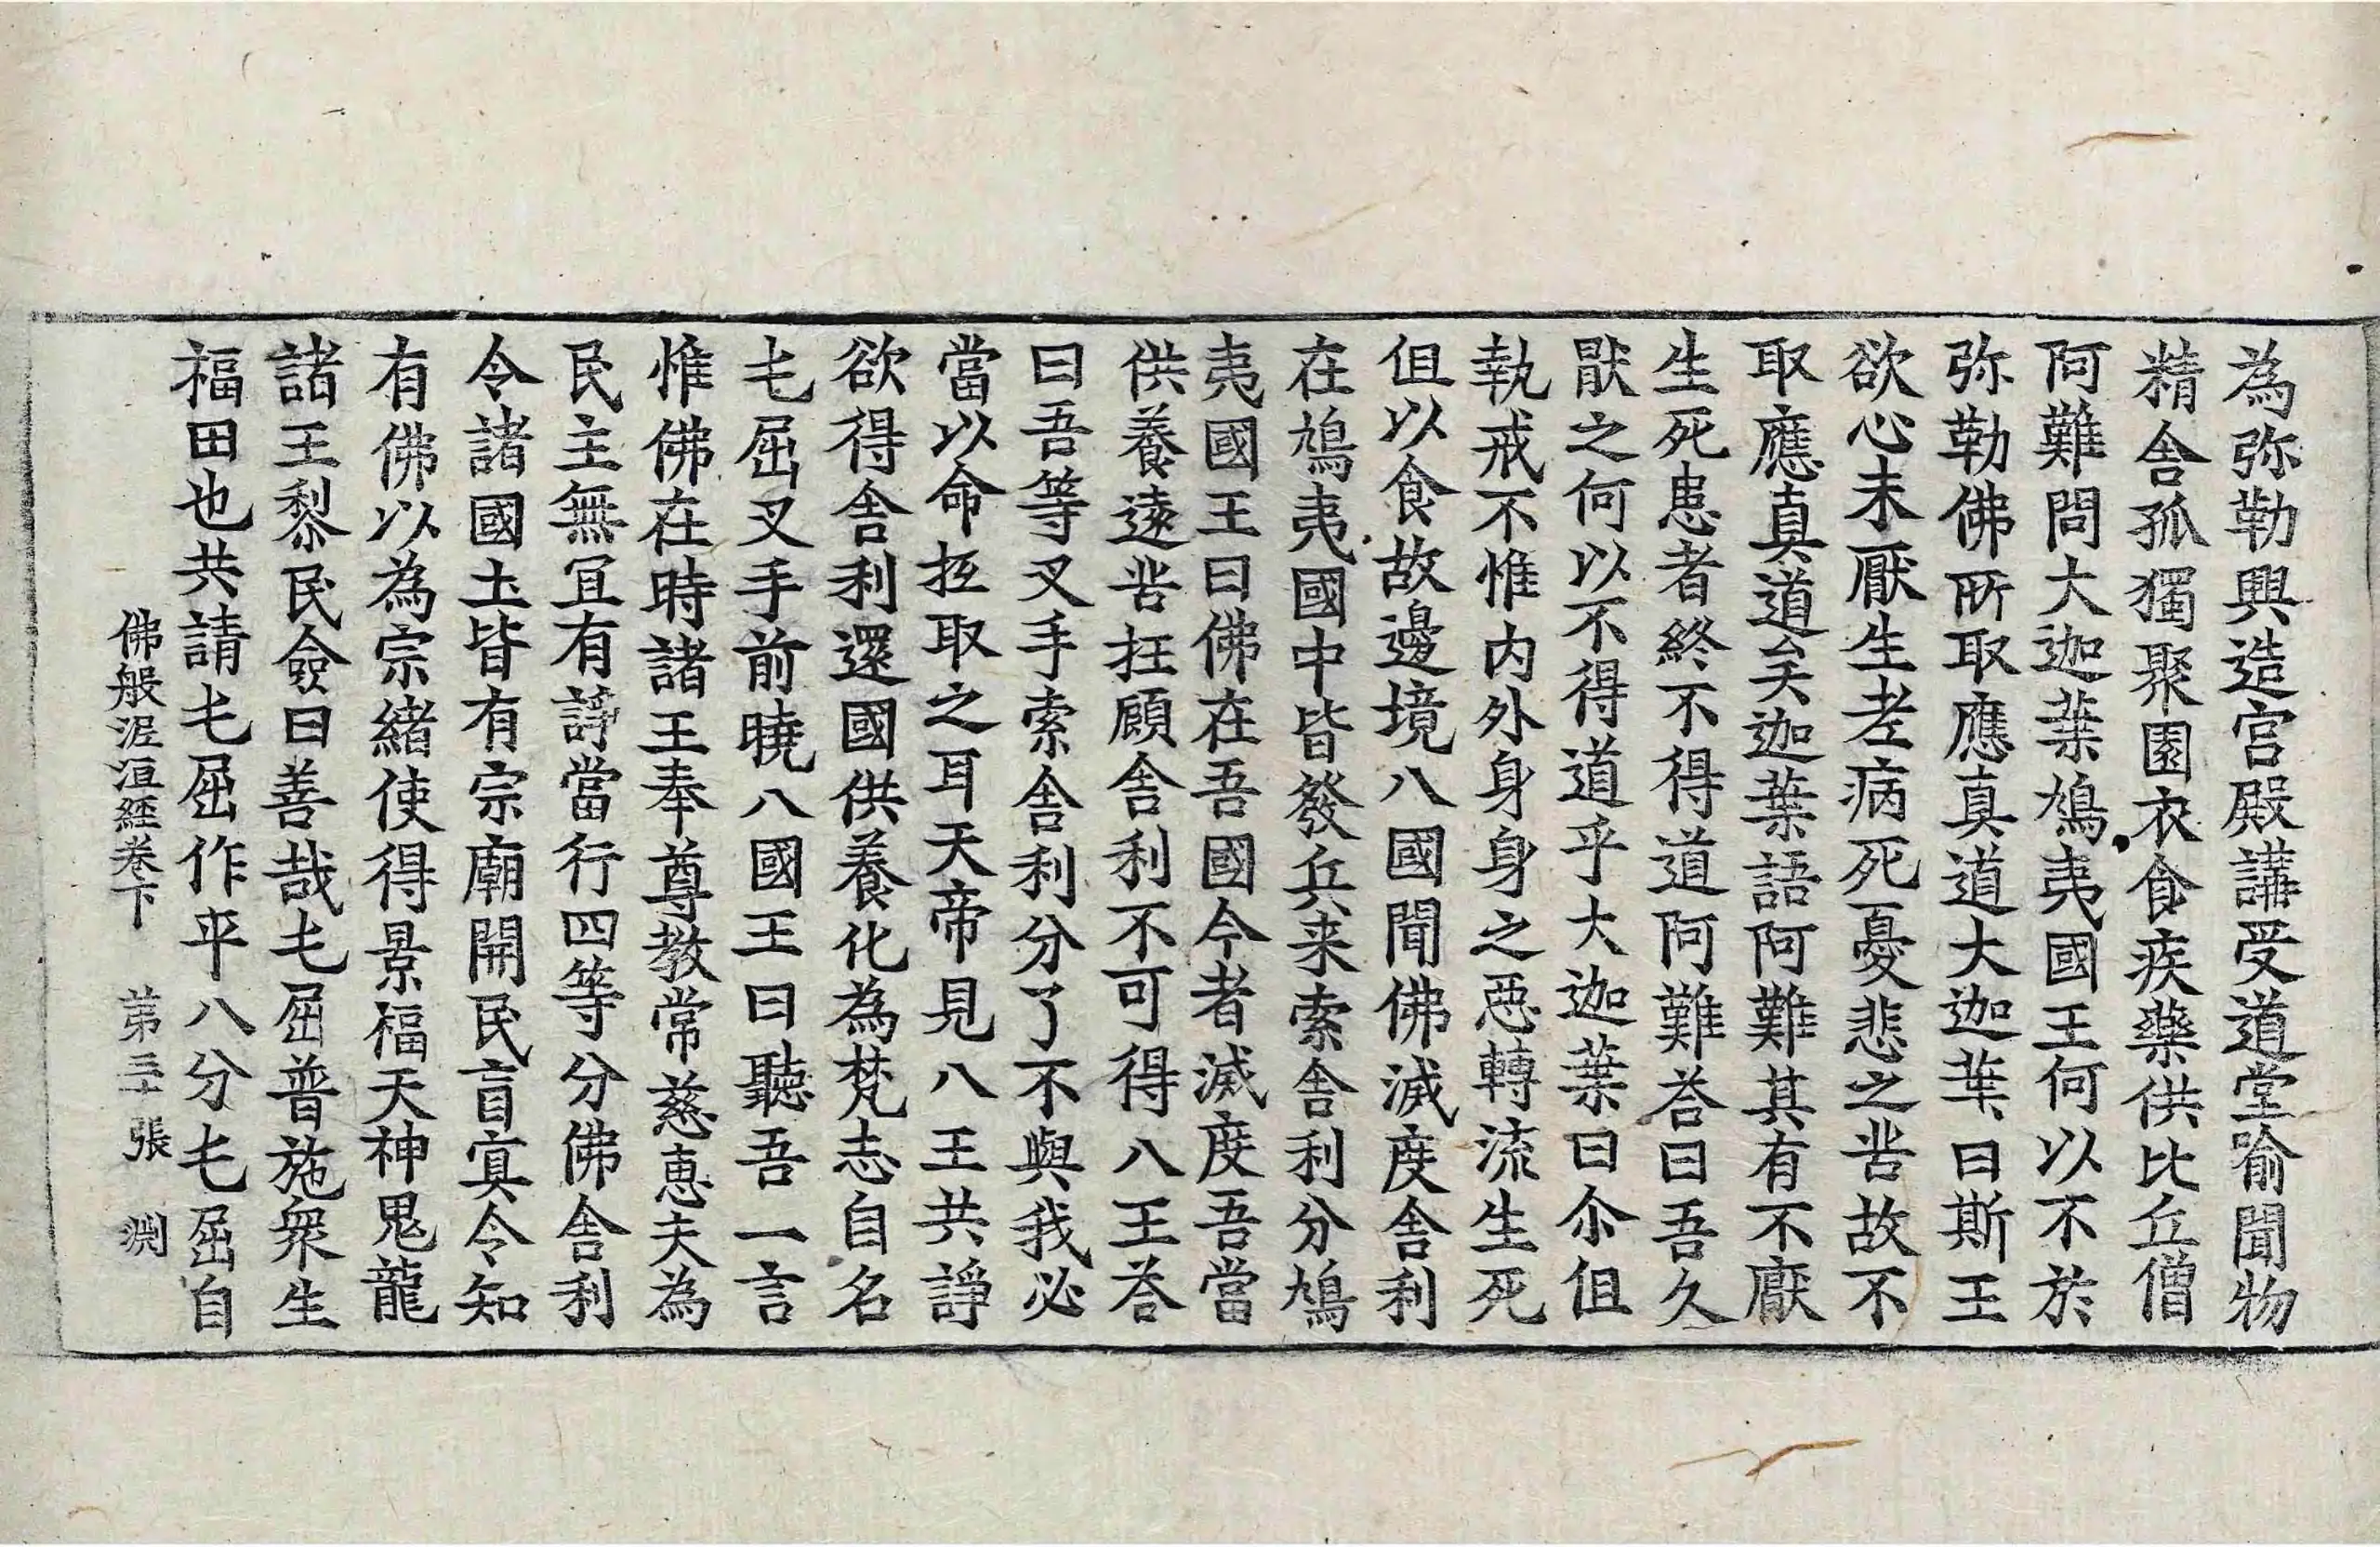 為弥勒興造宮殿講受道堂喻聞物
精舍孤獨聚園衣食疾藥供比丘僧
阿難問大迦葉鳩夷國王何以不於
弥勒佛所取應真道大迦葉曰斯王
欲心未厭生老病死憂悲之苦故不
取應真道矣迦葉語阿難其有不厭
生死患者終不得道阿難荅曰吾久
猒之何以不得道乎大迦葉曰尒但
執戒不惟内外身身之惡轉流生死
但以食故邊境八國聞佛滅度舍利
在鳩夷國中皆發兵来索舍利分鳩
夷國王曰佛在吾國今者滅度吾當
供養遠苦抂顧舍利不可得八王荅
曰吾等叉手索舍利分了不與我必
當以命抂取之耳天帝見八王共諍
欲得舍利還國供養化為梵志自名
乇屈叉手前曉八國王曰聽吾一言
惟佛在時諸王奉尊教常慈惠夫為
民主無冝有諍當行四等分佛舍利
令諸國土皆有宗廟開民盲冥令知
有佛以為宗緒使得景福天神鬼龍
諸王黎民僉曰善哉乇屈普施衆生
福田也共請乇屈作平八分乇屈自
佛般泥洹經卷下 第三十張 渊